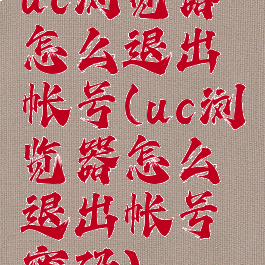 uc浏览器
怎么退出
帐号(uc浏
览器怎么
退出帐号
密码)